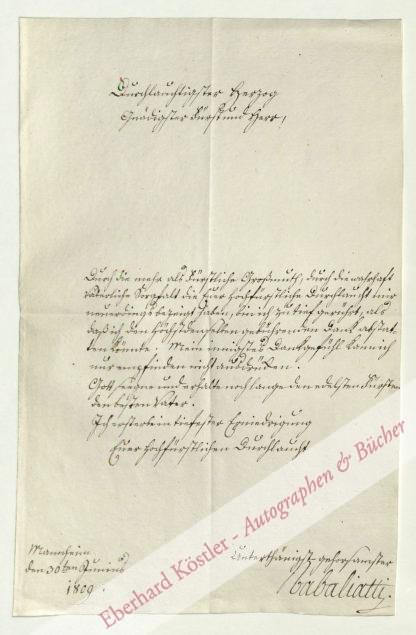 Durchlauchtigster Herzog
Gnädigster Fürst und Herr,
Durch die mehr als Fürstliche Großmuth, durch die wahrhaft
väterliche Sorgfalt die Euer Hochfürstliche Durchlaucht mir
neuerdings bezeigt haben, bin ich zu tief gerührt, als
daß ich den Höchstdenselben gebührenden Dank abstat-
ten könnte. Mein innigstes Dankgefühl kann ich
nur empfinden nicht ausdrüken.
Gott segne und erhalte noch lange den edelsten Fürsten
den besten Vater.
Ich ersterbe in tiefester Erniedrigung
Euer Hochfürstlichen Durchlaucht
Mannheim
den 30ten Junius
1809.
Unterthänigst gehorsamster
Babaliatti.
Eberhard Köstler - Autographen & Bücher